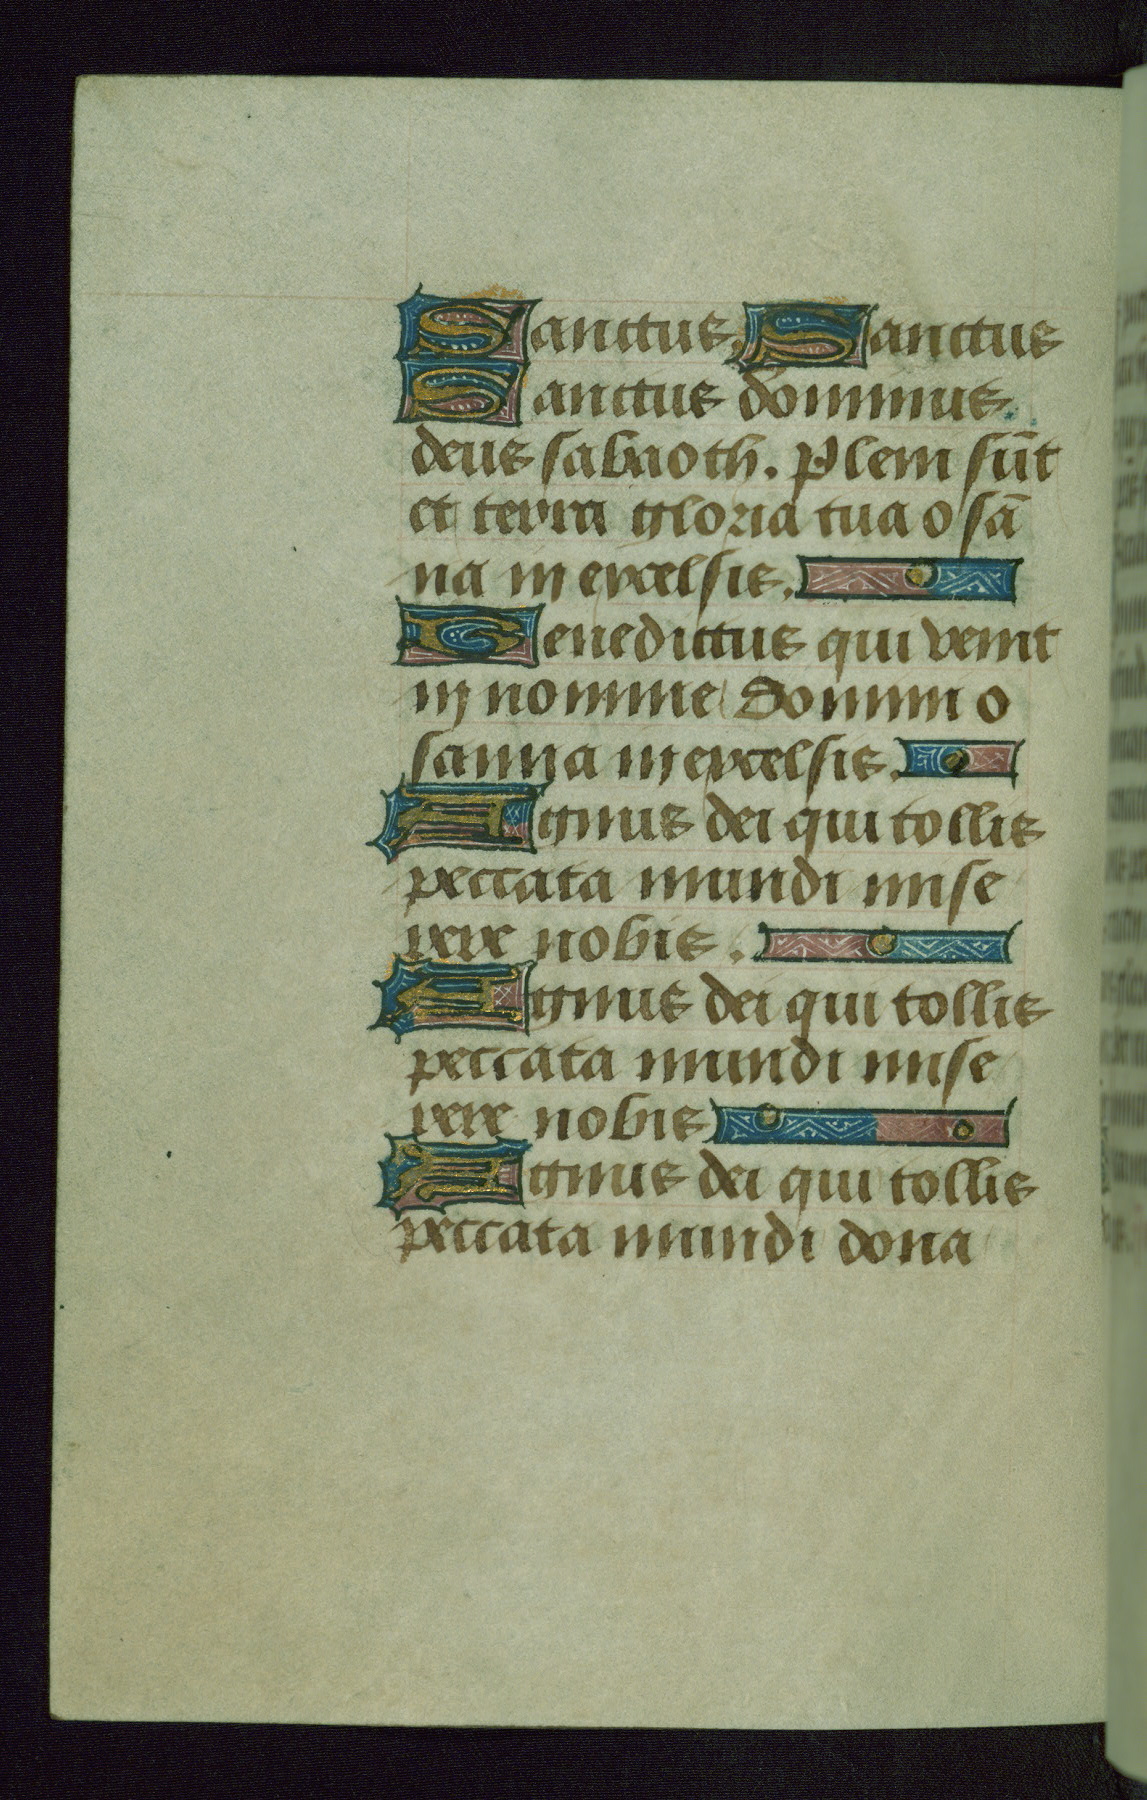 Sanctus. Sanctus
Sanctus dominus
deus sabaoth. Pleni sūt
et terra gloria tua o sā
na in excelsis.
Benedictus qui venit
in nomine Domini o
sanna in excelsis.
Agnus dei qui tollis
peccata mundi mise
rere nobis.
Agnus dei qui tollis
peccata mundi mise
rere nobis
Agnus dei qui tollis
peccata mundi dona